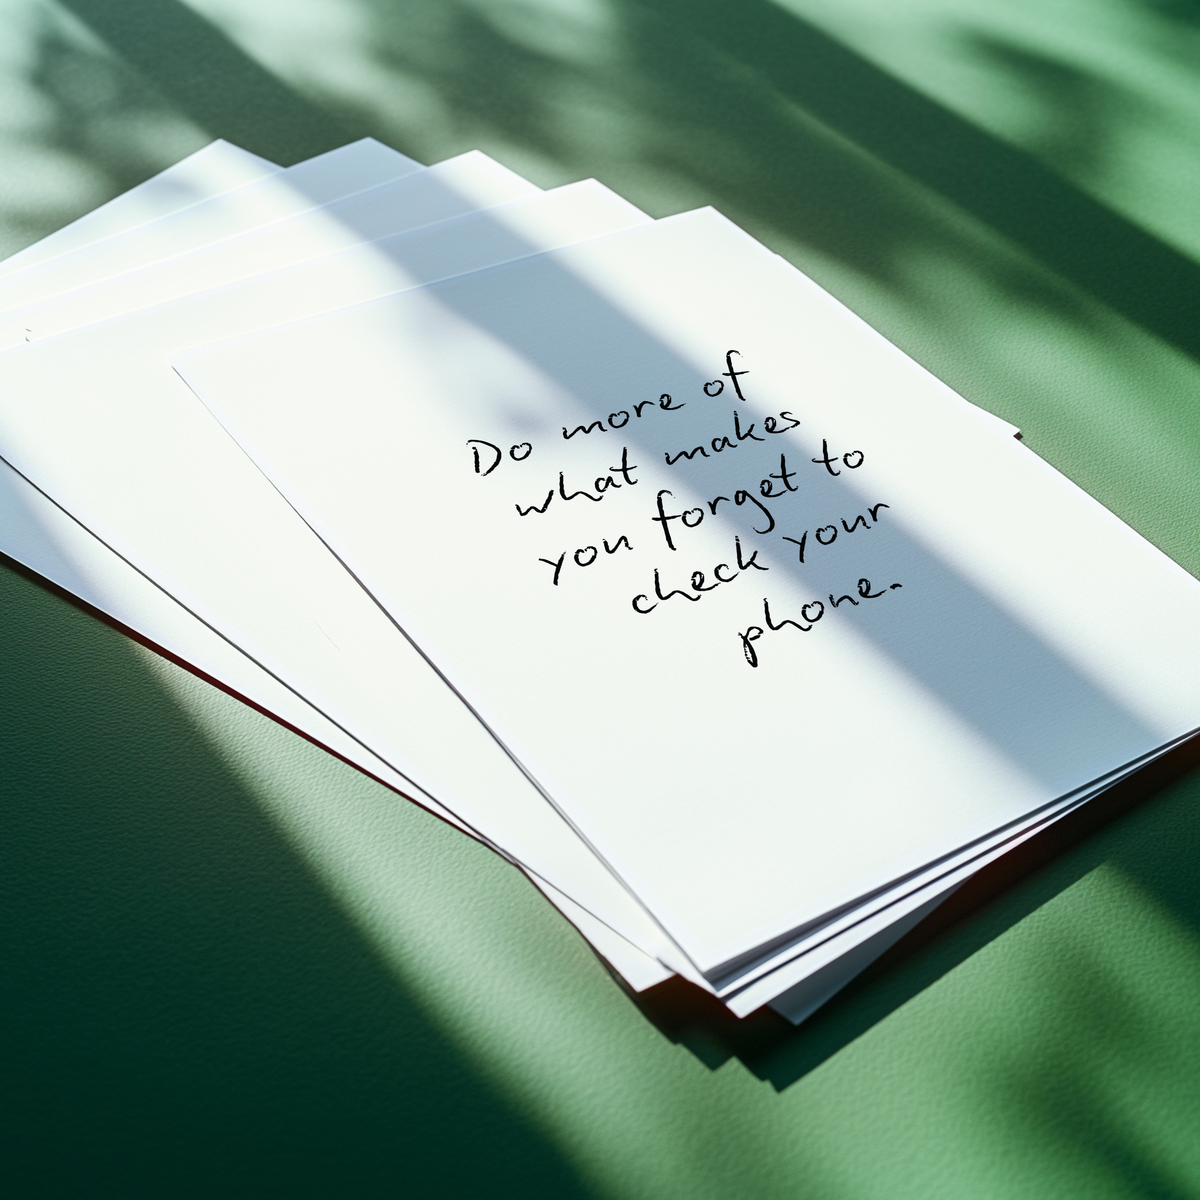 Do more of
what makes
you forget to
check your
phone.